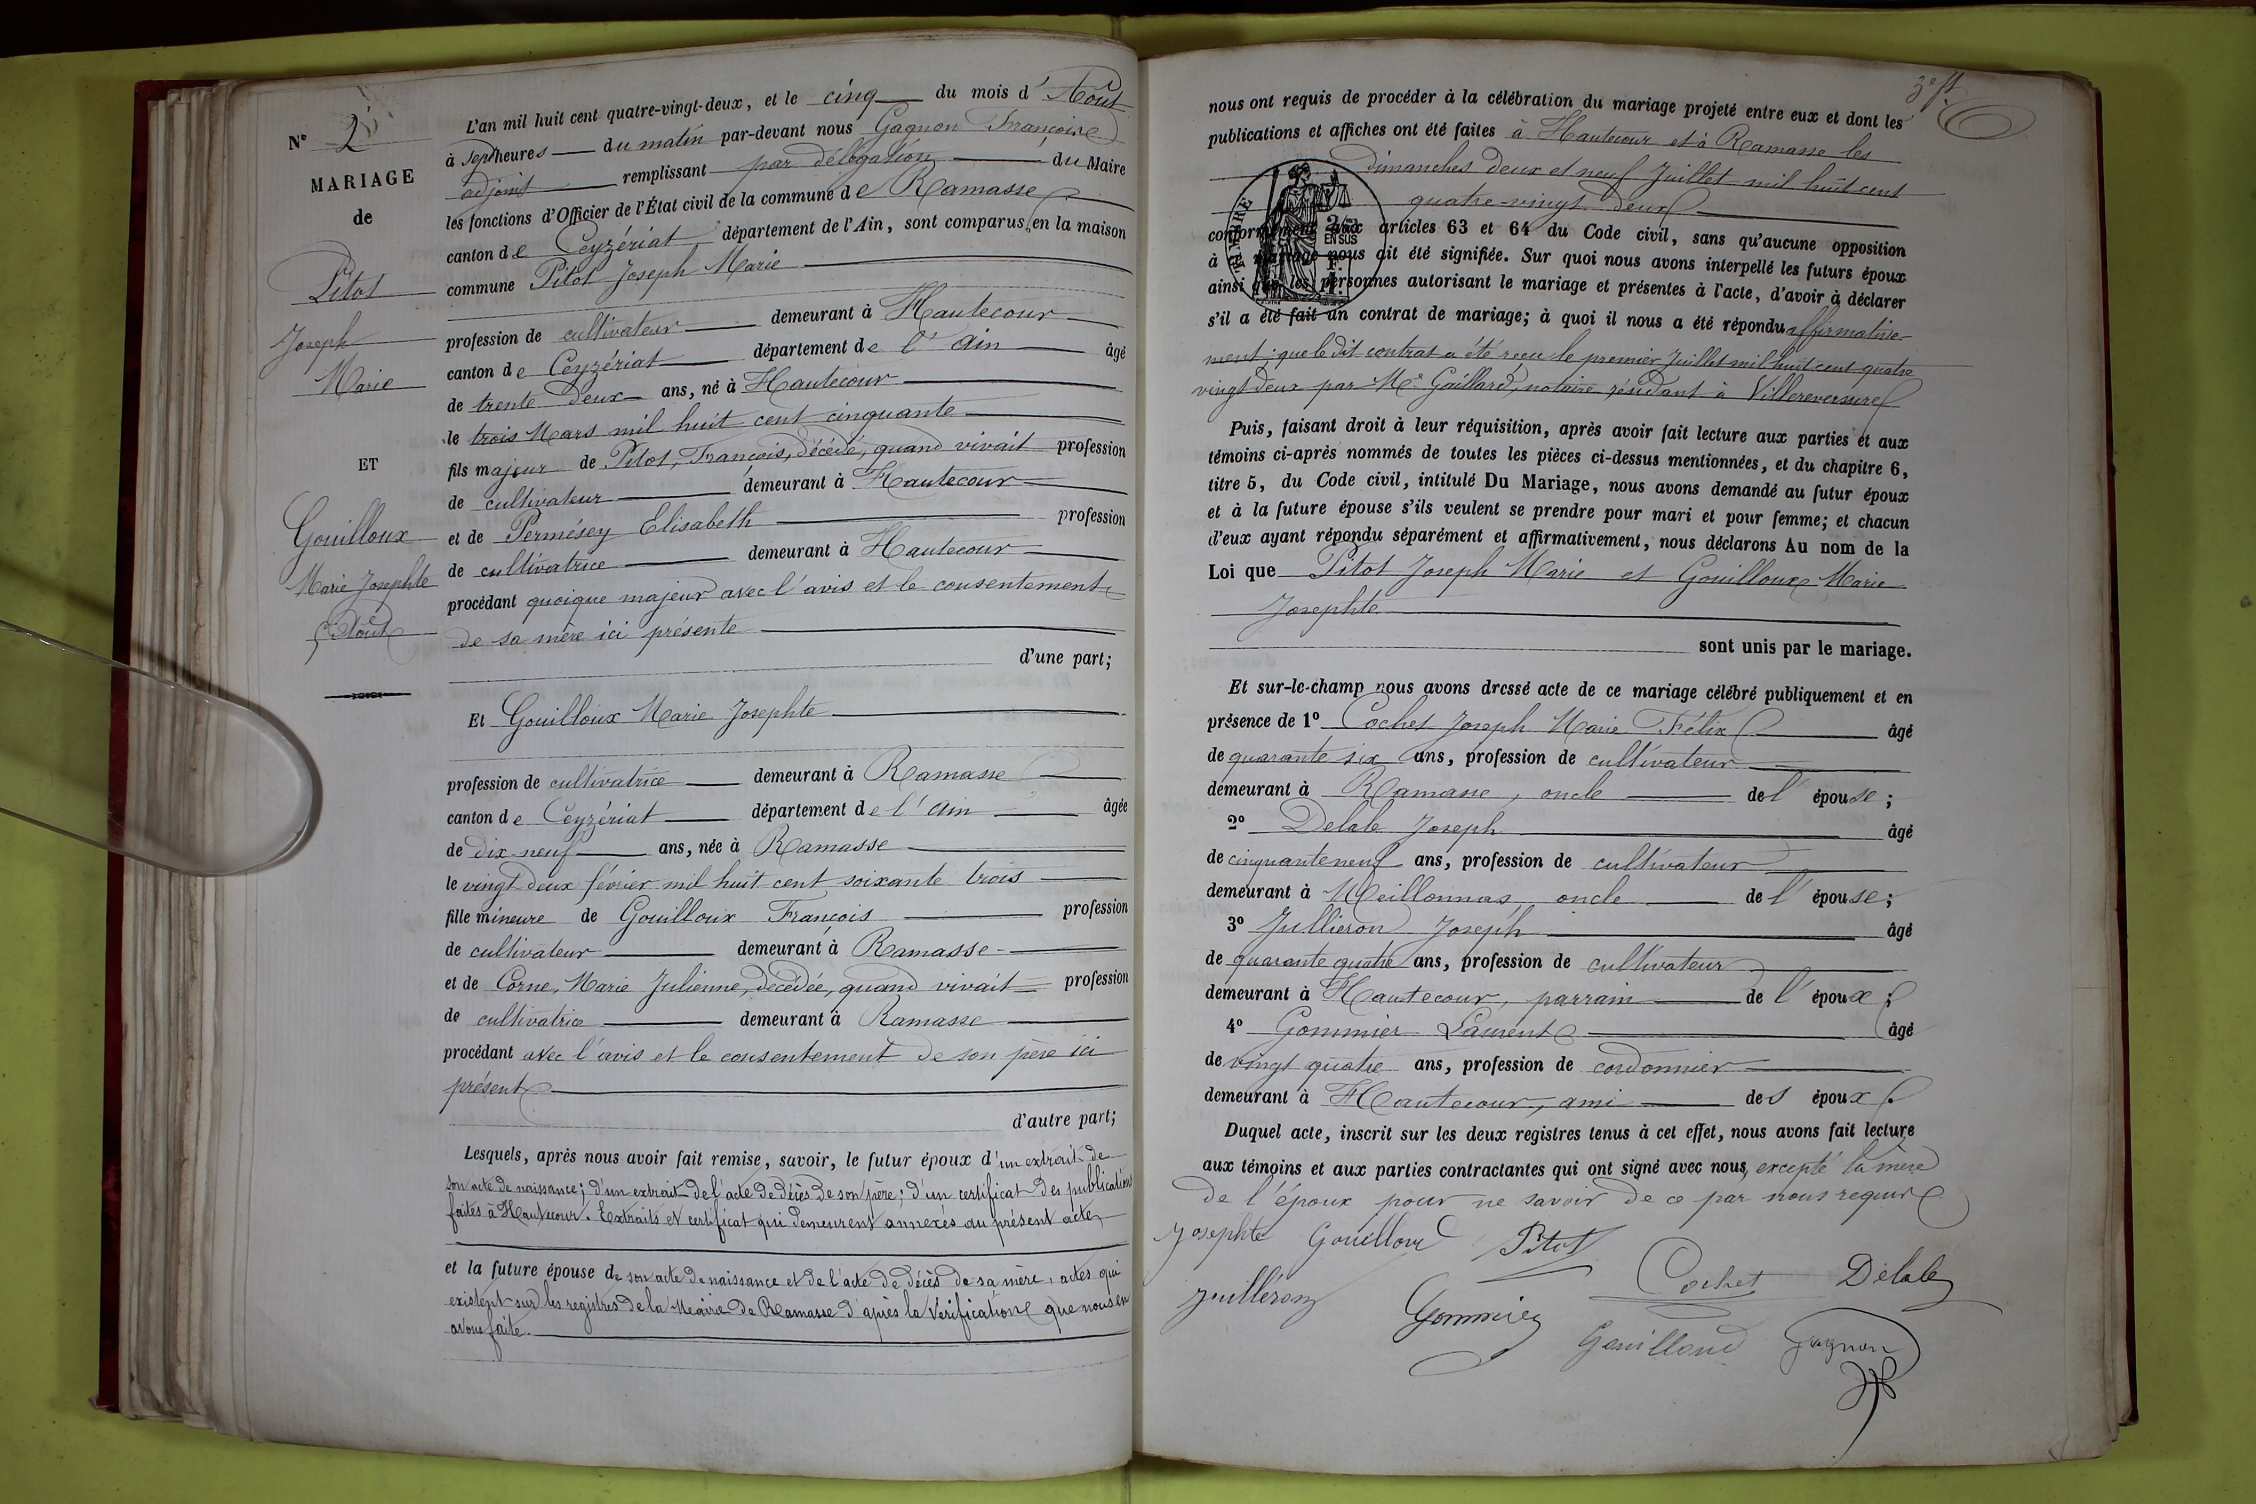 N° 2
MARIAGE
de
Pitot
Joseph
Marie
ET
Gouilloux
Marie Josephte
5 Août
L'an mil huit cent quatre-vingt-deux, et le cinq du mois d'Août
à sept heures du matin par-devant nous Gagnon François
adjoint remplissant par délégation du Maire
les fonctions d'Officier de l'État civil de la commune de Ramasse
canton de Ceyzériat département de l'Ain, sont comparus en la maison
commune Pitot Joseph Marie
profession de cultivateur demeurant à Hautecour
canton de Ceyzériat département de l'Ain âgé
de trente deux ans, né à Hautecour
le trois Mars mil huit cent cinquante
fils majeur de Pitot, François, décédé, quand vivait profession
de cultivateur demeurant à Hautecour
et de Permésey Elisabeth profession
de cultivatrice demeurant à Hautecour
procédant quoique majeur avec l'avis et le consentement
de sa mère ici présente
d'une part;
Et Gouilloux Marie Josephte
profession de cultivatrice demeurant à Ramasse
canton de Ceyzériat département de l'Ain âgée
de dix-neuf ans, née à Ramasse
le vingt deux février mil huit cent soixante trois
fille mineure de Gouilloux François profession
de cultivateur demeurant à Ramasse
et de Corne, Marie Julienne, décédée, quand vivait profession
de cultivatrice demeurant à Ramasse
procédant avec l'avis et le consentement de son père ici
présent
d'autre part;
Lesquels, après nous avoir fait remise, savoir, le futur époux d'un extrait de
son acte de naissance; d'un extrait de l'acte de décès de son père; d'un certificat des publications
faites à Hautecour. Extraits et certificat qui demeurent annexés au présent acte,
et la future épouse de son acte de naissance et de l'acte de décès de sa mère, actes qui
existent sur les registres de la Mairie de Ramasse d'après la vérification que nous en
avons faite.
nous ont requis de procéder à la célébration du mariage projeté entre eux et dont les
publications et affiches ont été faites à Hautecour et à Ramasse les
dimanches deux et neuf Juillet mil huit cent
quatre-vingt deux
TIMBRE
2/10
EN SUS
conformément aux articles 63 et 64 du Code civil, sans qu'aucune opposition
à ce mariage nous ait été signifiée. Sur quoi nous avons interpellé les futurs époux
ainsi que les personnes autorisant le mariage et présentes à l'acte, d'avoir à déclarer
s'il a été fait un contrat de mariage; à quoi il nous a été répondu affirmative-
ment: que le dit contrat a été reçu le premier Juillet mil huit cent quatre
vingt deux par Me Gaillard, notaire, résidant à Villereversure
Puis, faisant droit à leur réquisition, après avoir fait lecture aux parties et aux
témoins ci-après nommés de toutes les pièces ci-dessus mentionnées, et du chapitre 6,
titre 5, du Code civil, intitulé Du Mariage, nous avons demandé au futur époux
et à la future épouse s'ils veulent se prendre pour mari et pour femme; et chacun
d'eux ayant répondu séparément et affirmativement, nous déclarons Au nom de la
Loi que Pitot Joseph Marie et Gouilloux Marie
Josephte
sont unis par le mariage.
Et sur-le-champ nous avons dressé acte de ce mariage célébré publiquement et en
présence de 1° Cochet Joseph Marie Félix âgé
de quarante six ans, profession de cultivateur
demeurant à Ramasse, oncle de l'épouse;
2° Delale Joseph âgé
de cinquante neuf ans, profession de cultivateur
demeurant à Meillonnas, oncle de l'épouse;
3° Jullieron Joseph âgé
de quarante quatre ans, profession de cultivateur
demeurant à Hautecour, parrain de l'époux;
4° Gommier Laurent âgé
de vingt quatre ans, profession de cordonnier
demeurant à Hautecour, ami des époux.
Duquel acte, inscrit sur les deux registres tenus à cet effet, nous avons fait lecture
aux témoins et aux parties contractantes qui ont signé avec nous, excepté la mère
de l'époux pour ne savoir de ce par nous requise
Josephte Gouilloux Pitot
Cochet Delale
Juilléron Gommier
Gouilloud Gagnon